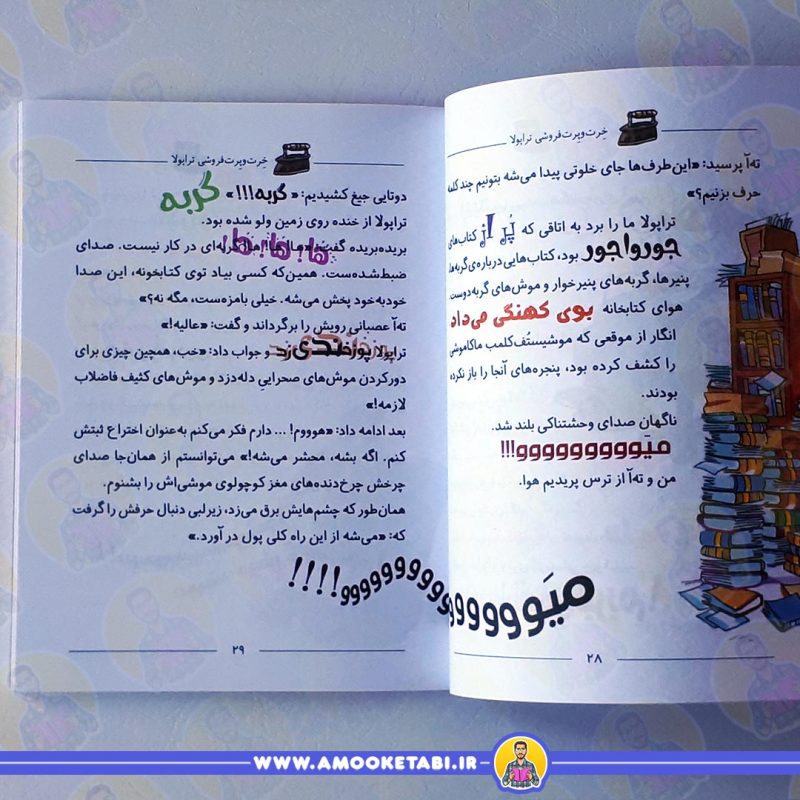 خِرت‌وپِرت‌فروشی تراپولا
ته‌آ پرسید: «این‌طرف‌ها جای خلوتی پیدا می‌شه بتونیم چند کلمه
حرف بزنیم؟»
تراپولا ما را برد به اتاقی که پُر از کتاب‌های
جورواجور بود، کتاب‌هایی درباره‌ی گربه‌ها،
پنیرها، گربه‌های پنیرخوار و موش‌های گربه‌دوست.
هوای کتابخانه بوی کهنگی می‌داد
انگار از موقعی که موشیستُف‌کلمب ماکاموشی
را کشف کرده بود، پنجره‌های آنجا را باز نکرده
بودند.
ناگهان صدای وحشتناکی بلند شد.
میَوووووووووو!!!
من و ته‌آ از ترس پریدیم هوا.
میَوووووووووووووووو!!!!
۲۸
خِرت‌وپِرت‌فروشی تراپولا
دوتایی جیغ کشیدیم: «گربه!!!» گربه
تراپولا از خنده روی زمین ولو شده بود.
بریده‌بریده گفت: «ها! ها! ها! گربه‌ای در کار نیست. صدای
ضبط‌شده‌ست. همین‌که کسی بیاد توی کتابخونه، این صدا
خودبه‌خود پخش می‌شه. خیلی بامزه‌ست، مگه نه؟»
ته‌آ عصبانی رویش را برگرداند و گفت: «عالیه!»
تراپولا پوزخندی زد و جواب داد: «خب، همچین چیزی برای
دورکردن موش‌های صحراییِ دله‌دزد و موش‌های کثیف فاضلاب
لازمه!»
بعد ادامه داد: «هوووم! ... دارم فکر می‌کنم به‌عنوان اختراع ثبتش
کنم. اگه بشه، محشر می‌شه!» می‌توانستم از همان‌جا صدای
چرخش چرخ‌دنده‌های مغز کوچولوی موشی‌اش را بشنوم.
همان‌طور که چشم‌هایش برق می‌زد، زیرلبی دنبال حرفش را گرفت
که: «می‌شه از این راه کلی پول در آورد.»
۲۹
WWW.AMOOKETABI.IR